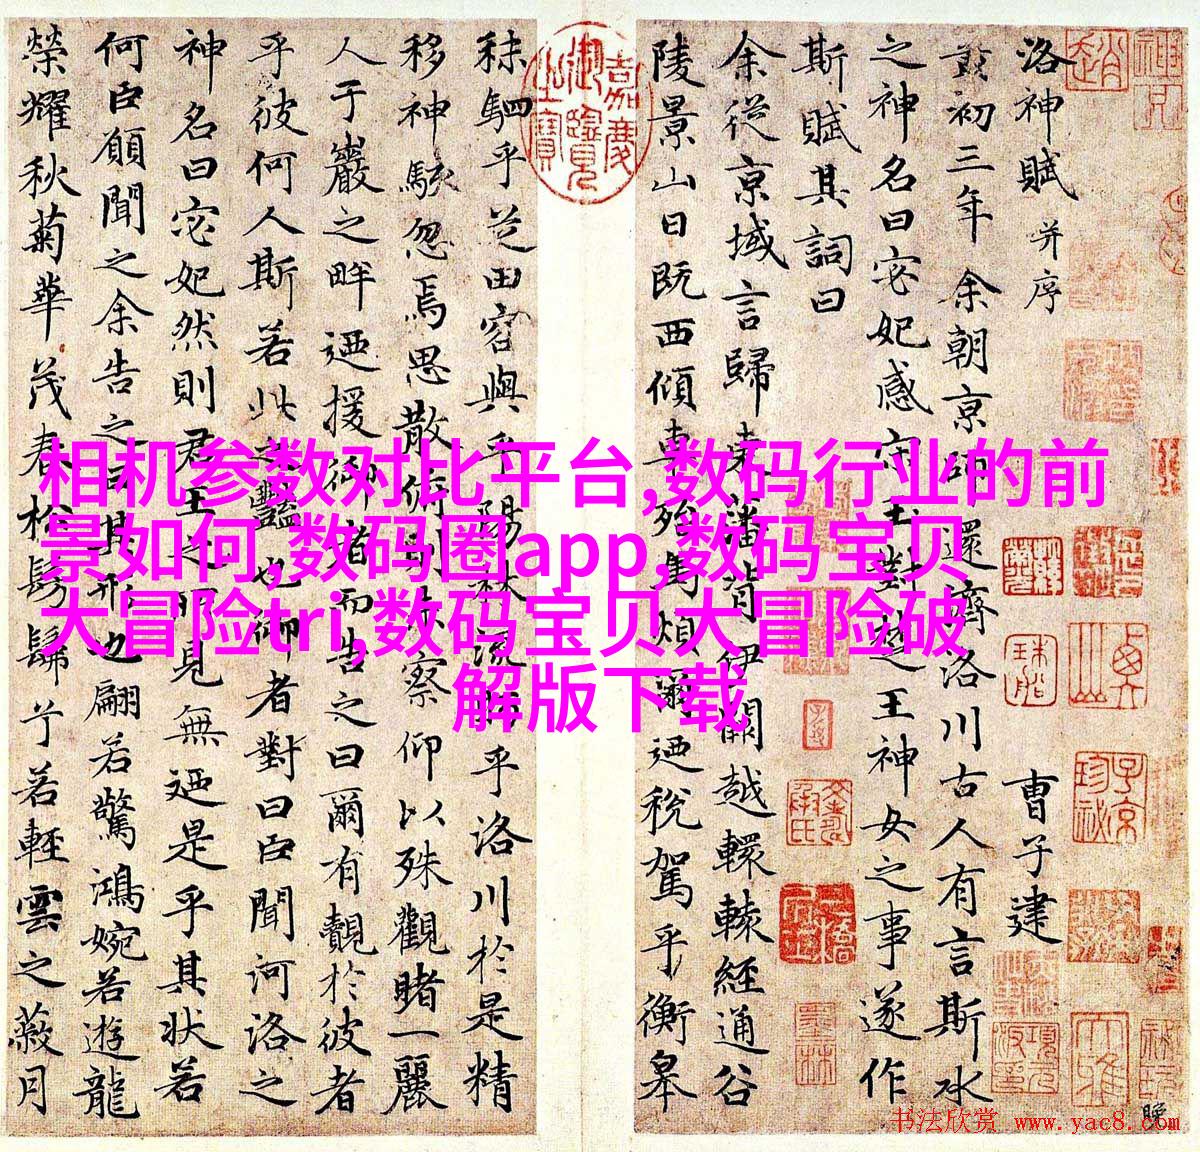 洛神賦 并序 曹子建
黃初三年余朝京師還濟洛川古人有言斯水
之神名曰宓妃感宋玉對楚王神女之事遂作
斯賦其詞曰
余從京域言歸東藩背伊闕越轘轅經通谷
陵景山日既西傾車殆馬煩爾迺稅駕乎衡皋
秣駟乎芝田容與乎陽林流眄乎洛川於是精
移神駭忽焉思散俯則未察仰以殊觀睹一麗
人于巖之畔迺援御者而告之曰爾有覿於彼者
乎彼何人斯若此之豔也御者對曰臣聞河洛之
神名曰宓妃然則君王之所見無迺是乎其狀若
何臣願聞之余告之曰其形也翩若驚鴻婉若遊龍
榮耀秋菊華茂春松髣髴兮若輕雲之蔽月
嘉慶御覽之寶
相机参数对比平台,数码行业的前
景如何,数码圈app,数码宝贝
大冒险tri,数码宝贝大冒险破
解版下载
书法欣赏 www.yac8.com